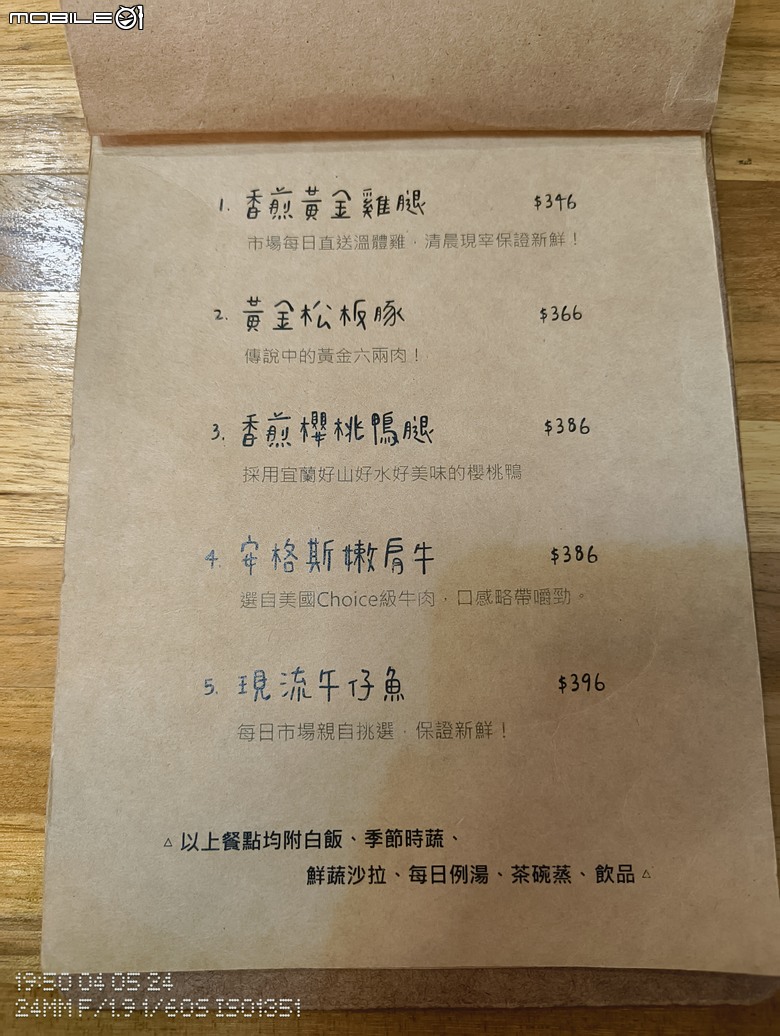 MOBILE01
1. 香煎黃金雞腿 $346
市場每日直送溫體雞，清晨現宰保證新鮮！
2. 黃金松板豚 $366
傳說中的黃金六兩肉！
3. 香煎櫻桃鴨腿 $386
採用宜蘭好山好水好美味的櫻桃鴨
4. 安格斯嫩肩牛 $386
選自美國Choice級牛肉，口感略帶嚼勁。
5. 現流午仔魚 $396
每日市場親自挑選，保證新鮮！
△ 以上餐點均附白飯、季節時蔬、
鮮蔬沙拉、每日例湯、茶碗蒸、飲品 △
19:50 04 05 24
24MM F/1.9 1/60S ISO1351